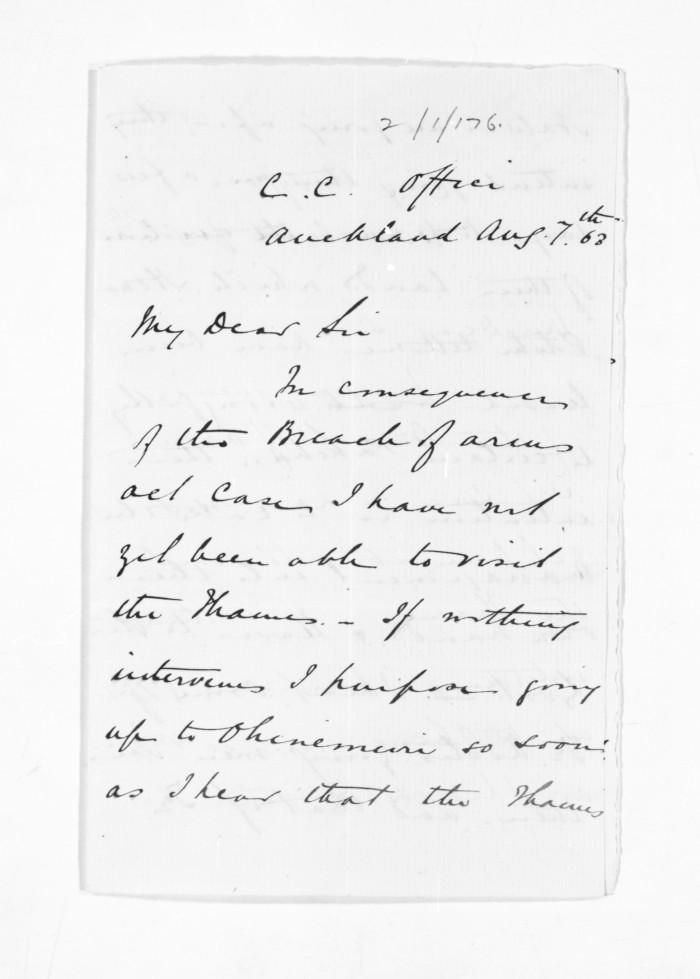 2/1/176.
C. C. Office
Auckland Aug. 7.th 63
My Dear Sir
In consequence
of the Breach of arms
act Case, I have not
yet been able to visit
the Thames. – If nothing
intervenes I purpose going
up to Ohinemuri so soon
as I hear that the Thames